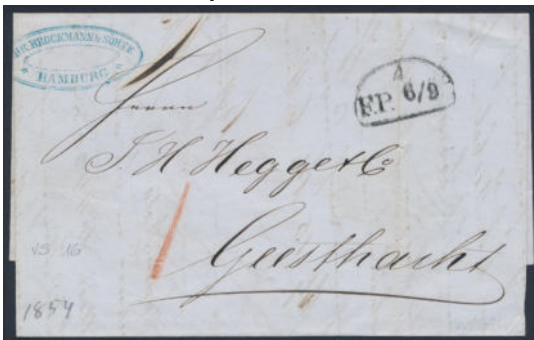 BROCKMANN & SÖHNE
HAMBURG
4
F.P. 6/9
Herrn
J. H. Hegge & Co
Geesthacht
1
VS 16
1854